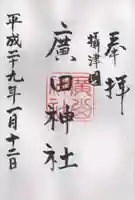 奉拝
摂津國
廣田神社
平成二十九年一月十二日